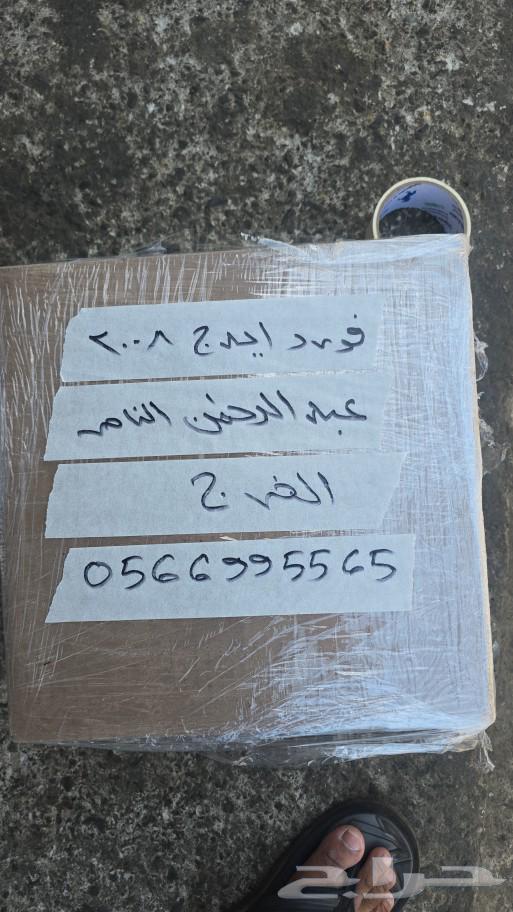 فورد ايدج ٢٠٠٨
عبد الرحمن الناصر
الخرج
0566995565
حراج